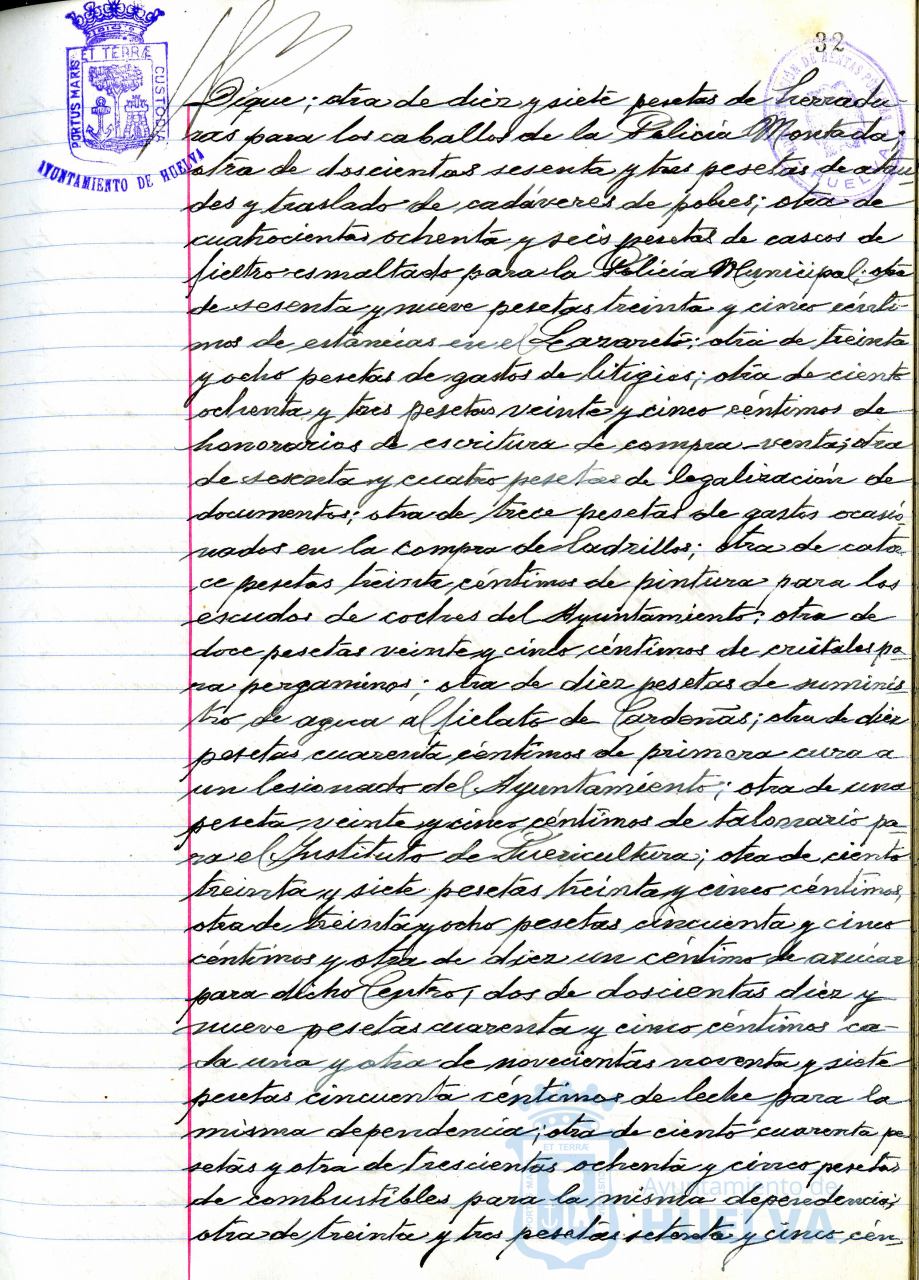 32
PORTUS MARIS ET TERRÆ CUSTODIA
AYUNTAMIENTO DE HUELVA
HUELVA
Dique; otra de diez y siete pesetas de herradu-
ras para los caballos de la Policía Montada;
otra de doscientas sesenta y tres pesetas de ataú-
des y traslado de cadáveres de pobres; otra de
cuatrocientas ochenta y seis pesetas de cascos de
fieltro esmaltado para la Policía Municipal; otra
de sesenta y nueve pesetas treinta y cinco cénti-
mos de estancias en el Lazareto; otra de treinta
y ocho pesetas de gastos de litigios; otra de ciento
ochenta y tres pesetas veinte y cinco céntimos de
honorarios de escritura de compra-venta; otra
de sesenta y cuatro pesetas de legalización de
documentos; otra de trece pesetas de gastos ocasio
nados en la compra de ladrillos; otra de cator-
ce pesetas treinta céntimos de pintura para los
escudos de coches del Ayuntamiento; otra de
doce pesetas veinte y cinco céntimos de cristales pa-
ra pergaminos; otra de diez pesetas de suminis-
tro de agua al fielato de Cardeñas; otra de diez
pesetas cuarenta céntimos de primera cura a
un lesionado del Ayuntamiento; otra de una
peseta veinte y cinco céntimos de talonario pa-
ra el Instituto de Puericultura; otra de ciento
treinta y siete pesetas treinta y cinco céntimos,
otra de treinta y ocho pesetas cincuenta y cinco
céntimos y otra de diez un céntimo de azúcar
para dicho Centro; dos de doscientas diez y
nueve pesetas cuarenta y cinco céntimos ca-
da una y otra de novecientas noventa y siete
pesetas cincuenta céntimos de leche para la
misma dependencia; otra de ciento cuarenta pe
setas y otra de trescientas ochenta y cinco pesetas
de combustibles para la misma dependencia;
otra de treinta y tres pesetas setenta y cinco cén-
Ayuntamiento de
HUELVA